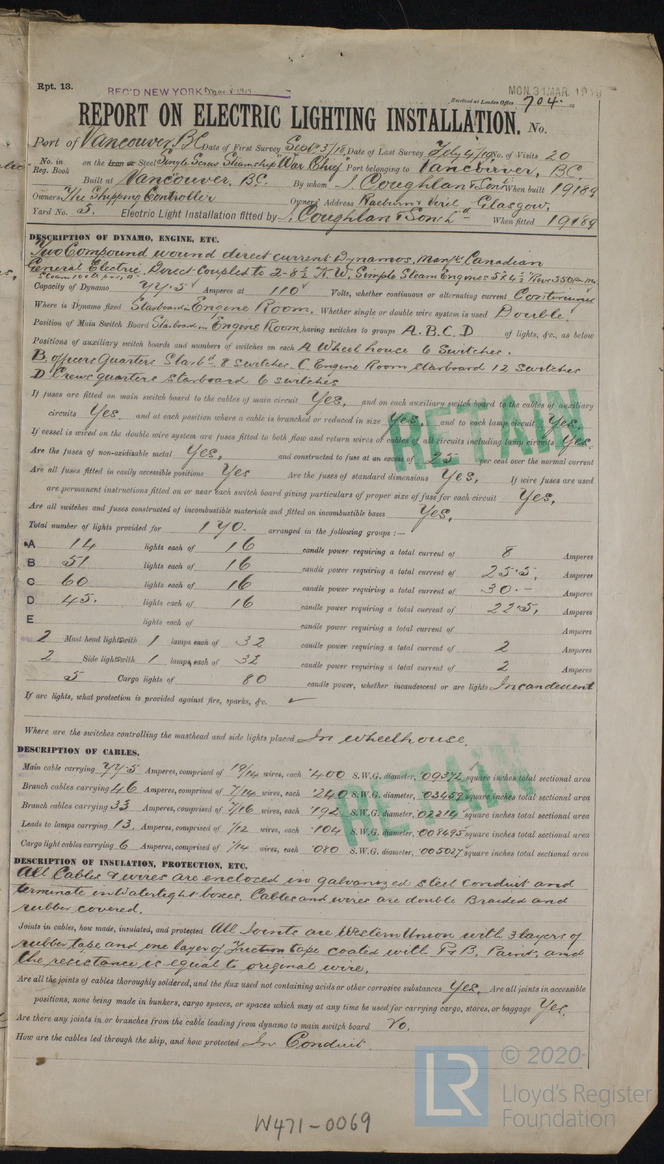 Rpt. 13.
REC'D NEW YORK Mar 8 1919
MON. 31 MAR. 1919
Received at London Office
704
REPORT ON ELECTRIC LIGHTING INSTALLATION. No.
Port of Vancouver, BC Date of First Survey Sept 5/18 Date of Last Survey Feby 4/19 No. of Visits 20
No. in Reg. Book on the Iron or Steel Single Screw Steamship "War Chief" Port belonging to Vancouver, BC.
Built at Vancouver, BC. By whom J. Coughlan & Sons When built 1918 9
Owners The Shipping Controller Owners' Address Glasgow.
Yard No. 5. Electric Light Installation fitted by J. Coughlan & Sons Ld When fitted 1918 9
DESCRIPTION OF DYNAMO, ENGINE, ETC.
Two Compound wound direct current Dynamos, Manfr Canadian
General Electric. Direct Coupled to 2-8½ K.W. Simple Steam Engines 5 x 4½ Revs 550 per m
Capacity of Dynamo 77.5 Amperes at 110 Volts, whether continuous or alternating current Continuous
Where is Dynamo fixed Starboard in Engine Room. Whether single or double wire system is used Double.
Position of Main Switch Board Starboard in Engine Room, having switches to groups A. B. C. D of lights, &c., as below
Positions of auxiliary switch boards and numbers of switches on each A Wheel house 6 Switches.
B. Officers Quarters Starbd. 8 switches. C Engine Room starboard 12 switches
D Crews quarters starboard 6 switches
If fuses are fitted on main switch board to the cables of main circuit Yes, and on each auxiliary switch board to the cables of auxiliary
circuits Yes. and at each position where a cable is branched or reduced in size Yes, and to each lamp circuit Yes.
If vessel is wired on the double wire system are fuses fitted to both flow and return wires of cables of all circuits including lamp circuits Yes.
Are the fuses of non-oxidizable metal Yes, and constructed to fuse at an excess of 25 per cent over the normal current
Are all fuses fitted in easily accessible positions Yes Are the fuses of standard dimensions Yes, If wire fuses are used
are permanent instructions fitted on or near each switch board giving particulars of proper size of fuse for each circuit Yes,
Are all switches and fuses constructed of incombustible materials and fitted on incombustible bases Yes,
RETAIN
Total number of lights provided for 170. arranged in the following groups :—
A 14 lights each of 16 candle power requiring a total current of 8 Amperes
B 51 lights each of 16 candle power requiring a total current of 25.5, Amperes
C 60 lights each of 16 candle power requiring a total current of 30.- Amperes
D 45. lights each of 16 candle power requiring a total current of 22.5, Amperes
E lights each of candle power requiring a total current of Amperes
2 Mast head lights with 1 lamps each of 32 candle power requiring a total current of 2 Amperes
2 Side lights with 1 lamps each of 32 candle power requiring a total current of 2 Amperes
5 Cargo lights of 80 candle power, whether incandescent or arc lights Incandescent
If arc lights, what protection is provided against fire, sparks, &c. ✓
Where are the switches controlling the masthead and side lights placed In wheelhouse.
DESCRIPTION OF CABLES.
Main cable carrying 77.5 Amperes, comprised of 19/14 wires, each .400 S.W.G. diameter, .09372 square inches total sectional area
Branch cables carrying 46 Amperes, comprised of 7/14 wires, each .240 S.W.G. diameter, .03459 square inches total sectional area
Branch cables carrying 33 Amperes, comprised of 7/16 wires, each .192 S.W.G. diameter, .02214 square inches total sectional area
Leads to lamps carrying 13. Amperes, comprised of 1/12 wires, each .104 S.W.G. diameter, .008495 square inches total sectional area
Cargo light cables carrying 6 Amperes, comprised of 1/14 wires, each .080 S.W.G. diameter, .005027 square inches total sectional area
RETAIN
DESCRIPTION OF INSULATION, PROTECTION, ETC.
All Cables & wires are enclosed in galvanized steel conduit and
terminate in Watertight boxes. Cables and wires are double Braided and
rubber covered.
Joints in cables, how made, insulated, and protected All Joints are Western Union with 3 layers of
rubber tape and one layer of Friction tape coated with P & B. Paint, and
the resistance is equal to original wire.
Are all the joints of cables thoroughly soldered, and the flux used not containing acids or other corrosive substances Yes, Are all joints in accessible
positions, none being made in bunkers, cargo spaces, or spaces which may at any time be used for carrying cargo, stores, or baggage Yes.
Are there any joints in or branches from the cable leading from dynamo to main switch board No.
How are the cables led through the ship, and how protected In Conduit.
© 2020
LR
Lloyd's Register
Foundation
W471-0069